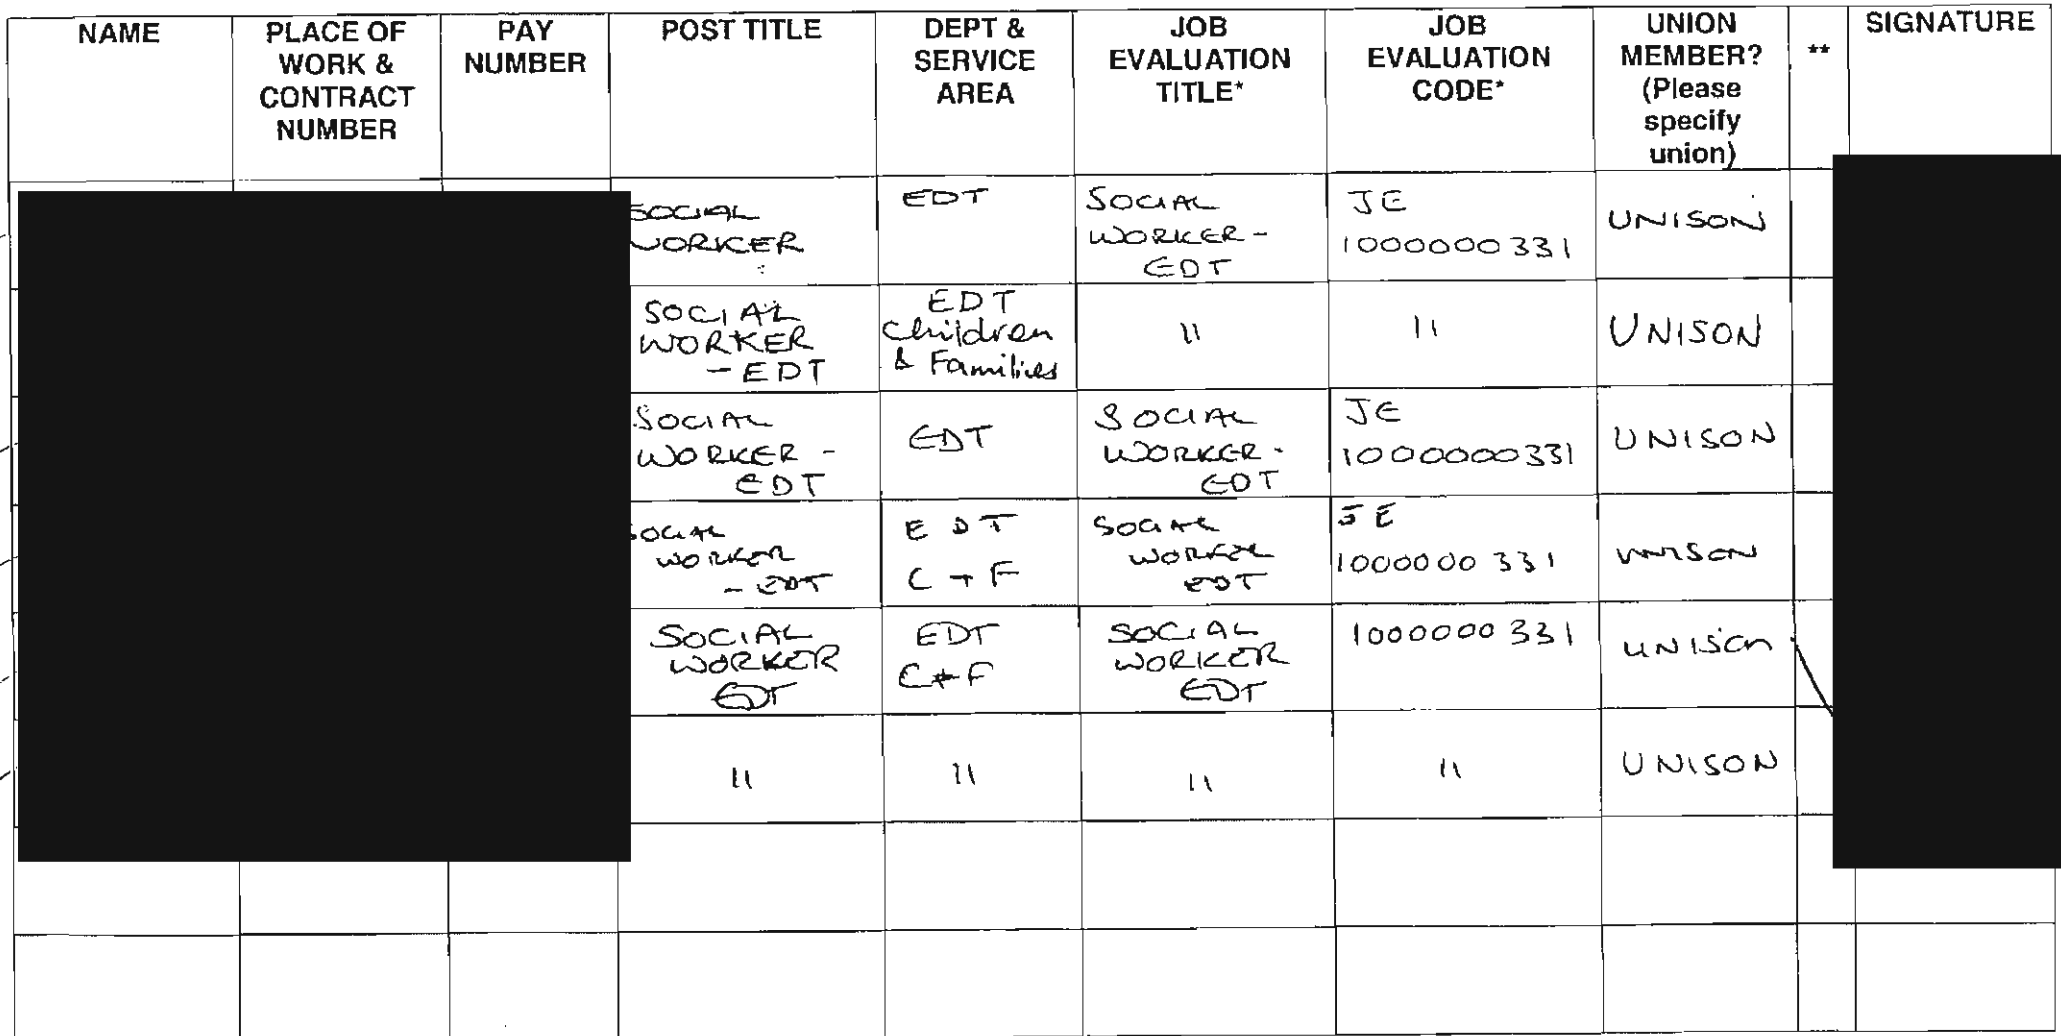 NAME
PLACE OF
WORK &
CONTRACT
NUMBER
PAY
NUMBER
POST TITLE
DEPT &
SERVICE
AREA
JOB
EVALUATION
TITLE*
JOB
EVALUATION
CODE*
UNION
MEMBER?
(Please
specify
union)
**
SIGNATURE
SOCIAL
WORKER
EDT
SOCIAL
WORKER -
EDT
JE
1000000331
UNISON
SOCIAL
WORKER
- EDT
EDT
Children
& Families
11
11
UNISON
SOCIAL
WORKER -
EDT
EDT
SOCIAL
WORKER -
EDT
JE
1000000331
UNISON
SOCIAL
WORKER
- EDT
EDT
C + F
SOCIAL
WORKER
EDT
JE
1000000 331
UNISON
SOCIAL
WORKER
EDT
EDT
C + F
SOCIAL
WORKER
EDT
1000000 331
UNISON
11
11
11
11
UNISON